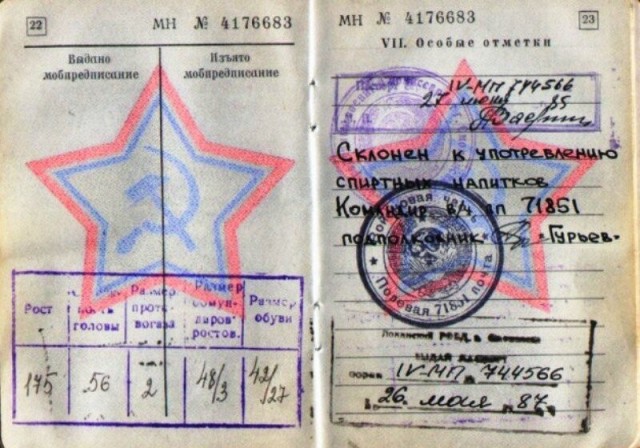 22
МН № 4176683
Выдано
мобпредписание
Изъято
мобпредписание
Рост
головы
Размер
противогаза
Размер
обмундиров
ростов.
Размер
обуви
175
56
2
48/3
42/27
МН № 4176683
23
VII. Особые отметки
IV-МП 744566
27 85
Склонен к употреблению
спиртных напитков
Командир в/ч пп 71851
подполковник «Гурьев»
Полевая почта 71851
IV-МП 744566
26 мая 87